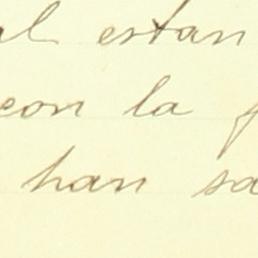 al estan
con la
han sa